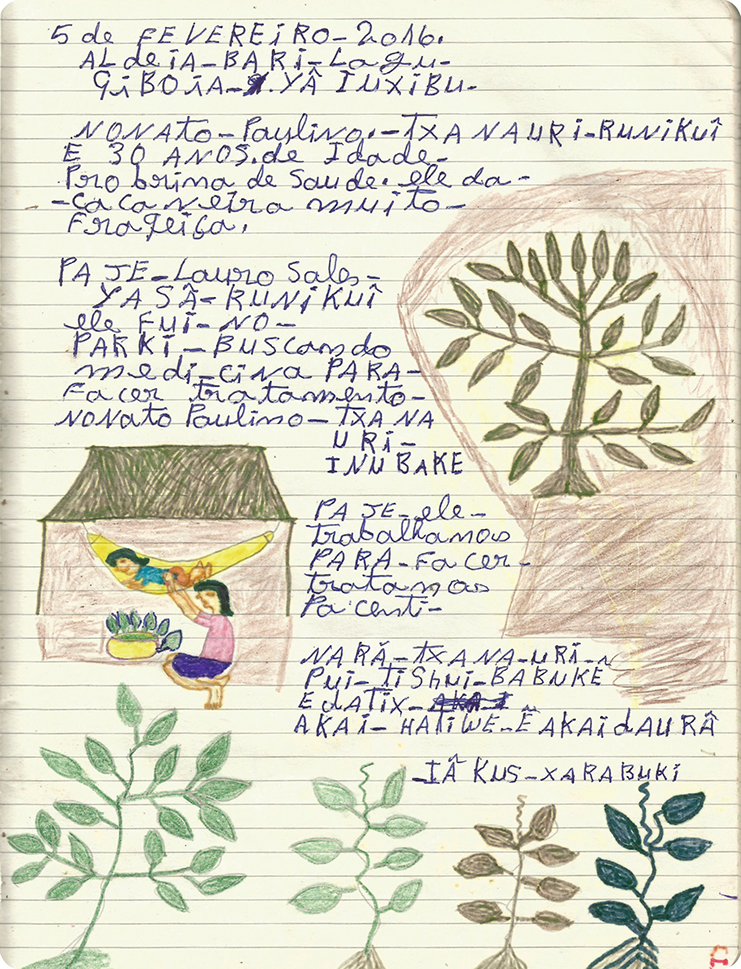 5 de FEVEREiRO-2016.
ALdeiA-BARi-Lagu-
GiBOiA-YÂ IUXIBU-
NONATO-Paulino.-TXANAURI-RUNiKUÎ
E 30 ANOS.de Idade-
Probrima de Saude. ele da-
-Cacaneira muito-
Frageiça.
PAJE-Lauro Sales-
YASÂ-RUNiKUÎ
ele FUi-NO-
PARKi-BUSCando
medi-cina PARA-
Facer tratamento-
NONATO Paulino-TXANA
URi-
INUBAKE
PAJE-ele-
trabalhamos
PARA-Facer-
tratamos
Pacenti-
NARÃ-TXANA-URi-
PUi-TiShUi-BABUKE
EdATiX-
AKAi-HATiWE-ÊAKAidAURÂ
IÂKUS-XARABUKi